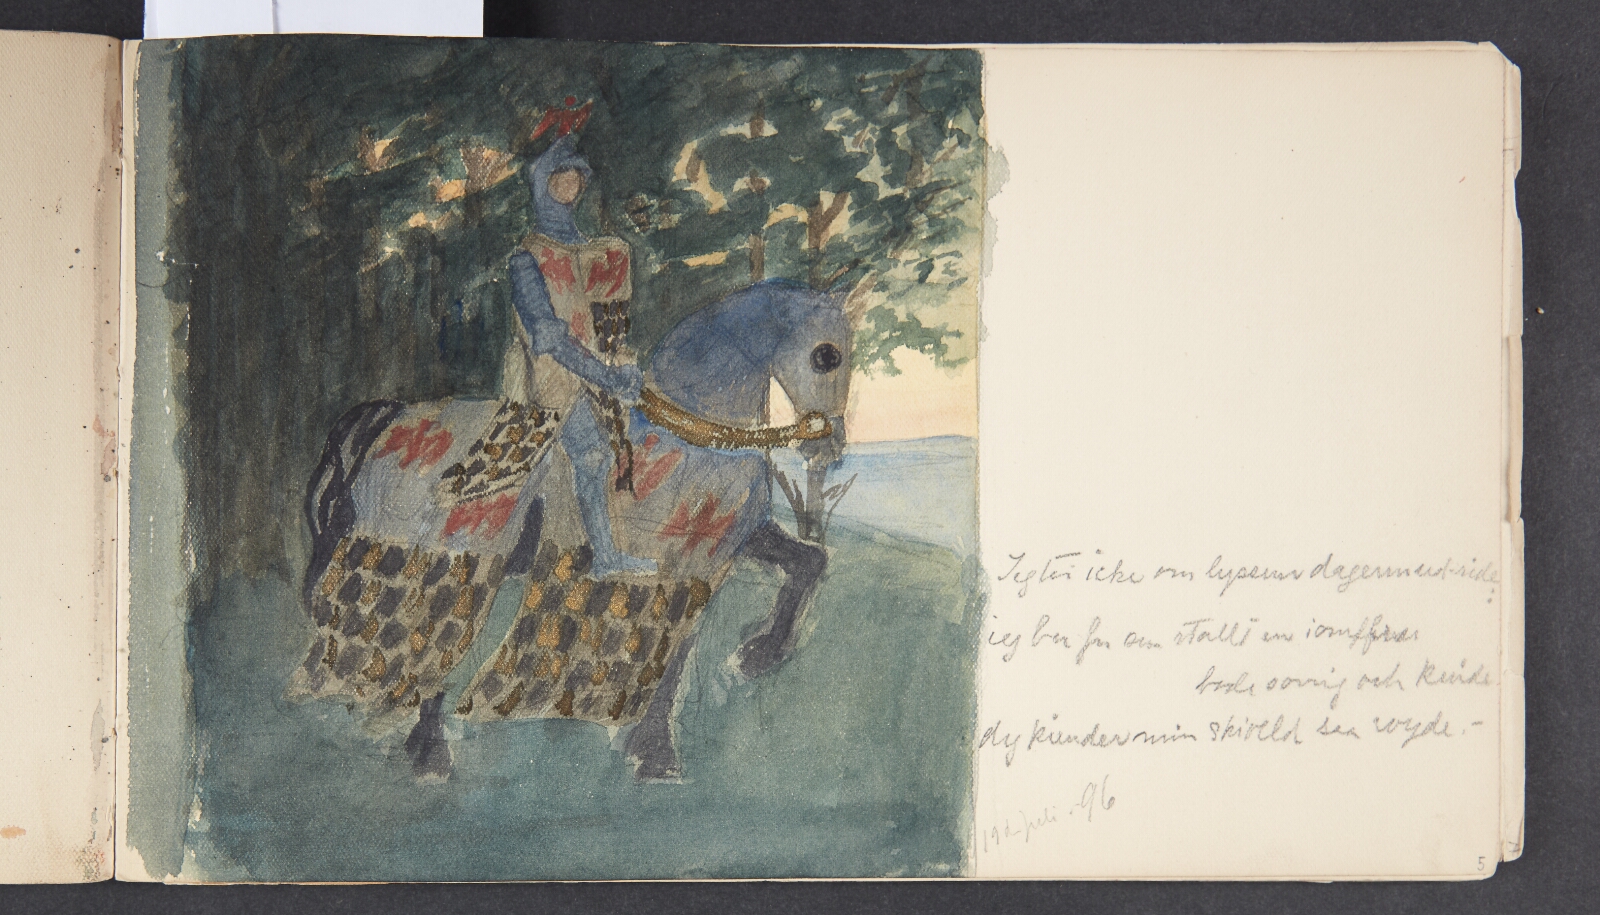 Jeg tør icke om lysenn dagenn ud ride:
ieg har for en stallt en iomffru
baade sorrig och kuide
dy kiender min skiolld saa wyde.-
19d juli -96
5